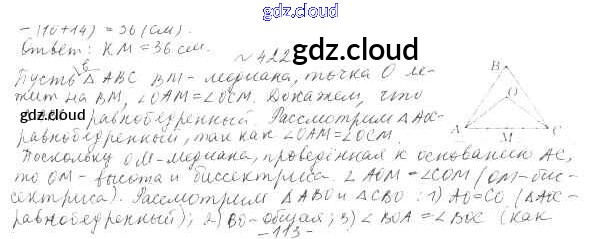 gdz.cloud
- (10+14) = 36 (см).
Ответ: КМ = 36 см.
gdz.cloud
№ 422
Пусть в Δ АВС ВМ - медиана, точка О ле-
жит на ВМ, ∠OAM = ∠OCM. Докажем, что
gdz.cloud равнобедренный. Рассмотрим Δ АОС-
равнобедренный, так как ∠OAM = ∠OCM.
Поскольку ОМ-медиана, проведённая к основанию АС,
то ОМ - высота и биссектриса. ∠AOM = ∠COM (ОМ-бис-
сектриса). Рассмотрим Δ АВО и Δ СВО: 1) АО=СО (Δ АОС-
равнобедренный); 2) ВО - общая; 3) ∠BOA = ∠BOC (как
-113-
B
O
A
M
C
gdz.cloud